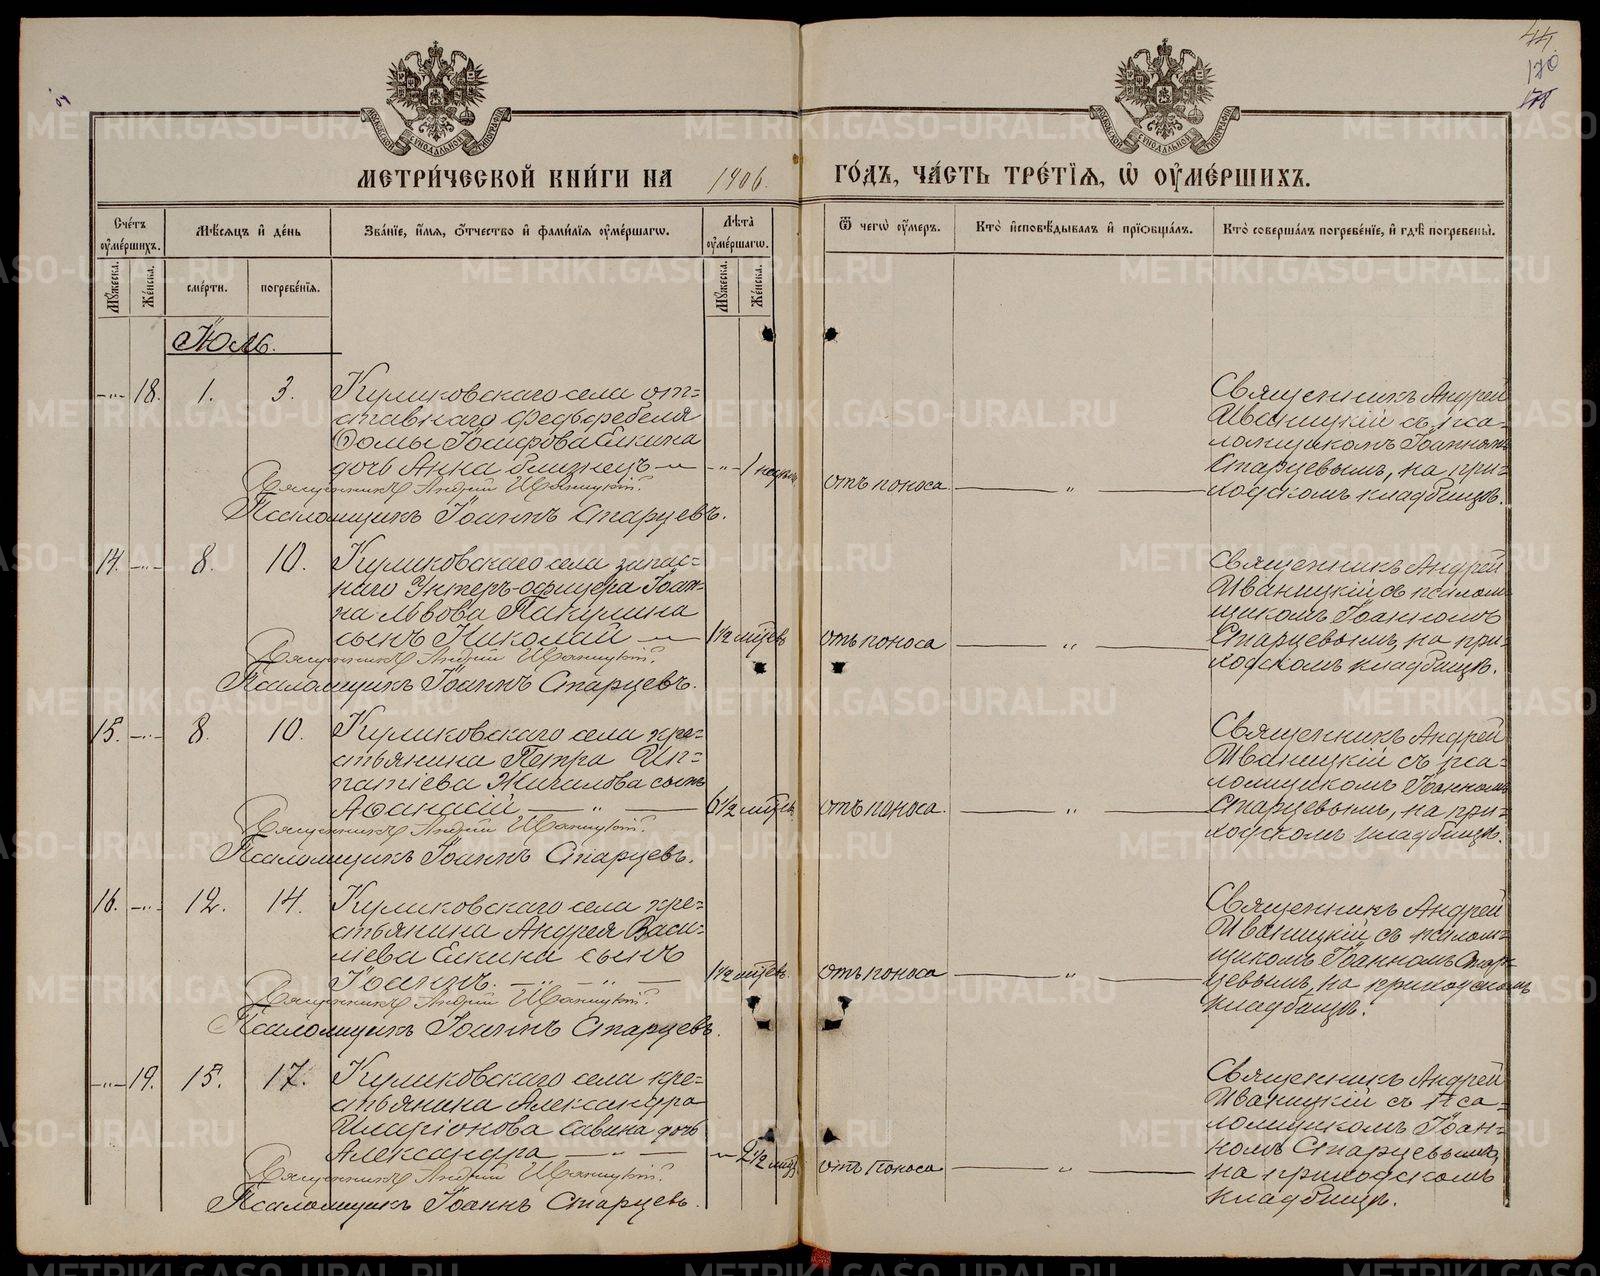 44
170
МЕТРИ́ЧЕСКОЙ КНИ́ГИ НА 1906. ГО́ДЪ, ЧА́СТЬ ТРЕ́ТЇѦ, Ѡ҆ ОУ҆МЕ́РШИХЪ.
Сче́тъ оу҆ме́ршихъ.
Мѣ́сѧцъ и҆ де́нь
Зва́нїе, и҆́мѧ, ѻ҆́тчество и҆ фами́лїѧ оу҆ме́ршагѡ.
Лѣ́та оу҆ме́ршагѡ.
Ѿ чегѡ̀ оу҆́меръ.
Кто̀ и҆сповѣ́дывалъ и҆ прїѡбща́лъ.
Кто̀ соверша́лъ погребе́нїе, и҆ гдѣ̀ погребены̀.
Мꙋ́жеска.
Же́нска.
сме́рти.
погребе́нїѧ.
Мꙋ́жеска.
Же́нска.
Іюль.
-„- 18. 1. 3.
Куликовскаго села от=
ставного фельдфебеля
Ѳомы Іосифова Елкина
дочь Анна близнецъ
Священникъ Андрей Иваницкій.
Псаломщикъ Іоаннъ Старцевъ.
отъ поноса.
Священникъ Андрей
Иваницкій съ пса-
ломщикомъ Іоанномъ
Старцевымъ, на при-
ходскомъ кладбищѣ.
14. -„- 8. 10.
Куликовскаго села запас=
наго Унтеръ-офицера Іоан-
на Львова Пикулина
сынъ Николай
1½ мѣсцевъ
Священникъ Андрей Иваницкій.
Псаломщикъ Іоаннъ Старцевъ.
отъ поноса
Священникъ Андрей
Иваницкій съ псалом
щикомъ Іоанномъ
Старцевымъ, на при-
ходскомъ кладбищѣ.
15. -„- 8. 10.
Куликовскаго села кре=
стьянина Петра Ип=
патіева Жигалова сынъ
Аѳанасій
6½ мѣсцевъ
Священникъ Андрей Иваницкій.
Псаломщикъ Іоаннъ Старцевъ.
отъ поноса.
Священникъ Андрей
Иваницкій съ пса-
ломщикомъ Іоанномъ
Старцевымъ, на при-
ходскомъ кладбищѣ.
16. -„- 12. 14.
Куликовскаго села кре=
стьянина Андрея Васи-
ліева Елкина сынъ
Іоаннъ.
1½ мѣсцевъ.
Священникъ Андрей Иваницкій.
Псаломщикъ Іоаннъ Старцевъ.
отъ поноса
Священникъ Андрей
Иваницкій съ псалом-
щикомъ Іоанномъ Стар-
цевымъ, на приходскомъ
кладбищѣ.
-„- 19. 15. 17.
Куликовскаго села кре=
стьянина Александра
Иларіонова Савина дочь
Александра
2½ мѣсц.
Священникъ Андрей Иваницкій.
Псаломщикъ Іоаннъ Старцевъ.
отъ поноса
Священникъ Андрей
Иваницкій съ пса-
ломщикомъ Іоан-
номъ Старцевымъ,
на приходскомъ
кладбищѣ.
METRIKI.GASO-URAL.RU